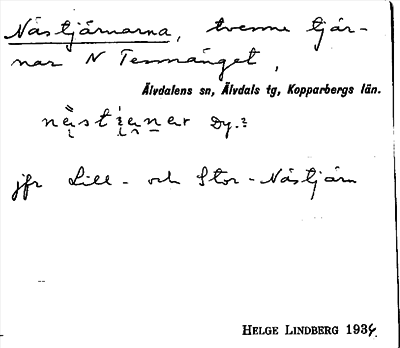 Nästjärnarna, tvenne tjär-
nar N Tennänget,
Älvdalens sn, Älvdals tg, Kopparbergs län.
Dy.:
jfr Lill- och Stor-Nästjärn
HELGE LINDBERG 1934.